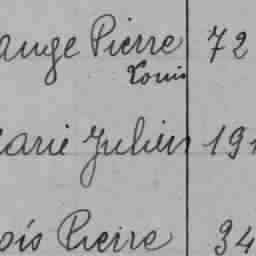 ange Pierre 72
Louis
arie Julien 191
ois Pierre 34